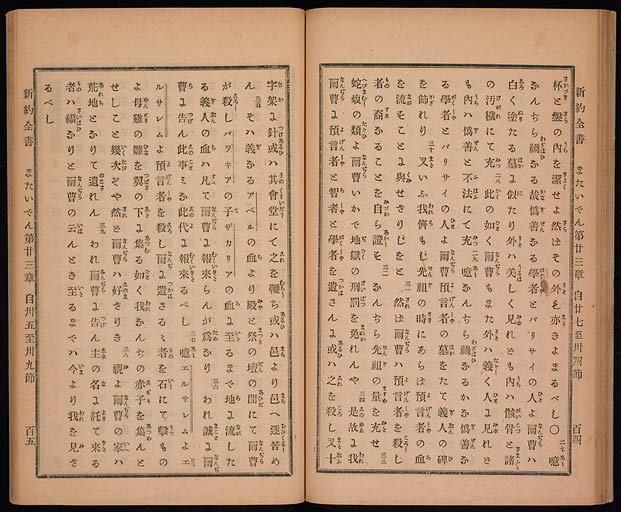 新約全書 またいでん第廿三章 自廿七至卅四節 百四
杯と盤の內を潔せよ然ばその外も亦きよまるべし〇 二七 噫
なんぢら禍なる哉僞善なる學者とパリサイの人よ爾曹ハ
白く塗たる墓に似たり外ハ美しく見れども內ハ骸骨と諸
の汚穢にて充 二八 此の如く爾曹もまた外ハ義く人に見れど
も內ハ僞善と不法にて充 二九 噫なんぢら禍なるかな僞善な
る學者とパリサイの人よ爾曹預言者の墓をたて義人の碑
を飾れり 三十 又いふ我儕もし先祖の時にあらば預言者の血
を流すことに與せざりしをと 三一 然ば爾曹ハ預言者を殺し
者の裔なることを自ら證す 三二 なんぢら先祖の量を充せ 三三
蛇蝮の類よ爾曹いかで地獄の刑罰を免れんや 三四 是故に我
爾曹に預言者と智者と學者を遣さんに或ハ之を殺し又十
字架に針或ハ其會堂にて之を鞭ち或ハ邑より邑へ逐苦め
ん 三五 そハ義なるアベルの血より殿と祭の壇の間にて爾曹
が殺しゝバラキアの子ザカリアの血に至るまで地に流した
る義人の血ハ凡て爾曹に報來らんが爲なり 三六 われ誠に爾
曹に告ん此事みな此代に報來るべし 三七 噫エルサレムよエ
ルサレムよ預言者を殺し爾に遣さるゝ者を石にて擊もの
よ母鷄の雛を翼の下に集る如く我なんぢの赤子を集んと
せしこと幾次ぞや然ど爾曹ハ好ざりき 三八 視よ爾曹の家ハ
荒地となりて遺れん 三九 われ爾曹に告ん主の名に託て來る
者ハ福なりと爾曹の云んとき至るまでハ今より我を見ざ
るべし
新約全書 またいでん第廿三章 自卅五至卅九節 百五